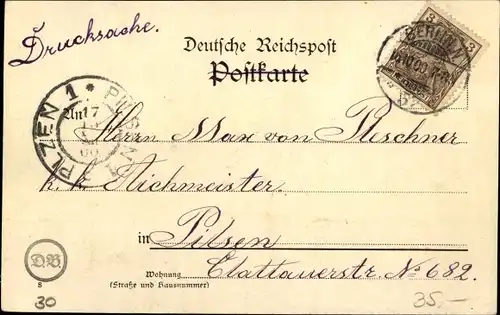 Drucksache.
Deutsche Reichspost
Postkarte
3 3
BERLIN
PLZEN 1 * PILSEN 1
An
17
00
Herrn Max von Pleschner
k. k. Aichmeister
in Pilsen
Wohnung
(Straße und Hausnummer)
Clattauerstr. No 682.
D.B.
8
30
35,-